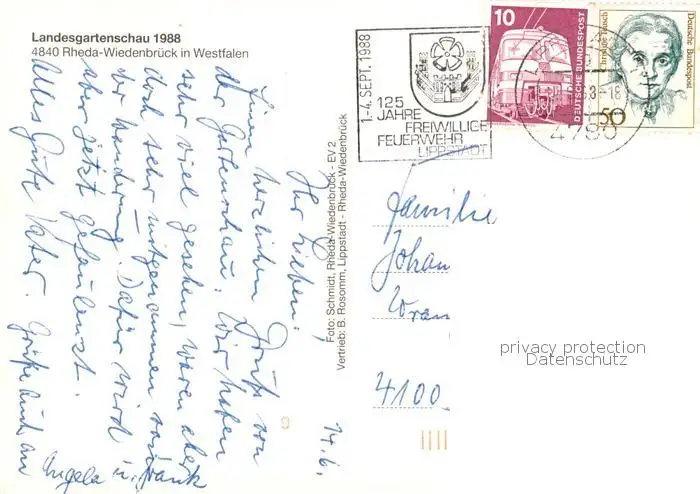 Landesgartenschau 1988
4840 Rheda-Wiedenbrück in Westfalen
14.6.
Ihr Lieben!
Einen herzlichen Gruß von
der Gartenschau. Wir haben
sehr viel gesehen, waren aber
doch sehr mitgenommen von
der Wanderung. Dafür wird
aber jetzt gefaulenzt.
Alles Gute Vater. Grüße auch an
Angela u. Frank
Foto: Schmidt, Rheda-Wiedenbrück - EV 2
Vertrieb: B. Rosomm, Lippstadt - Rheda-Wiedenbrück
1.-4. SEPT. 1988
125
JAHRE
FREIWILLIGE
FEUERWEHR
LIPPSTADT
10
DEUTSCHE BUNDESPOST
Christine Teusch
Deutsche Bundespost
50
4780
Familie
Johan
4100
9
privacy protection
Datenschutz